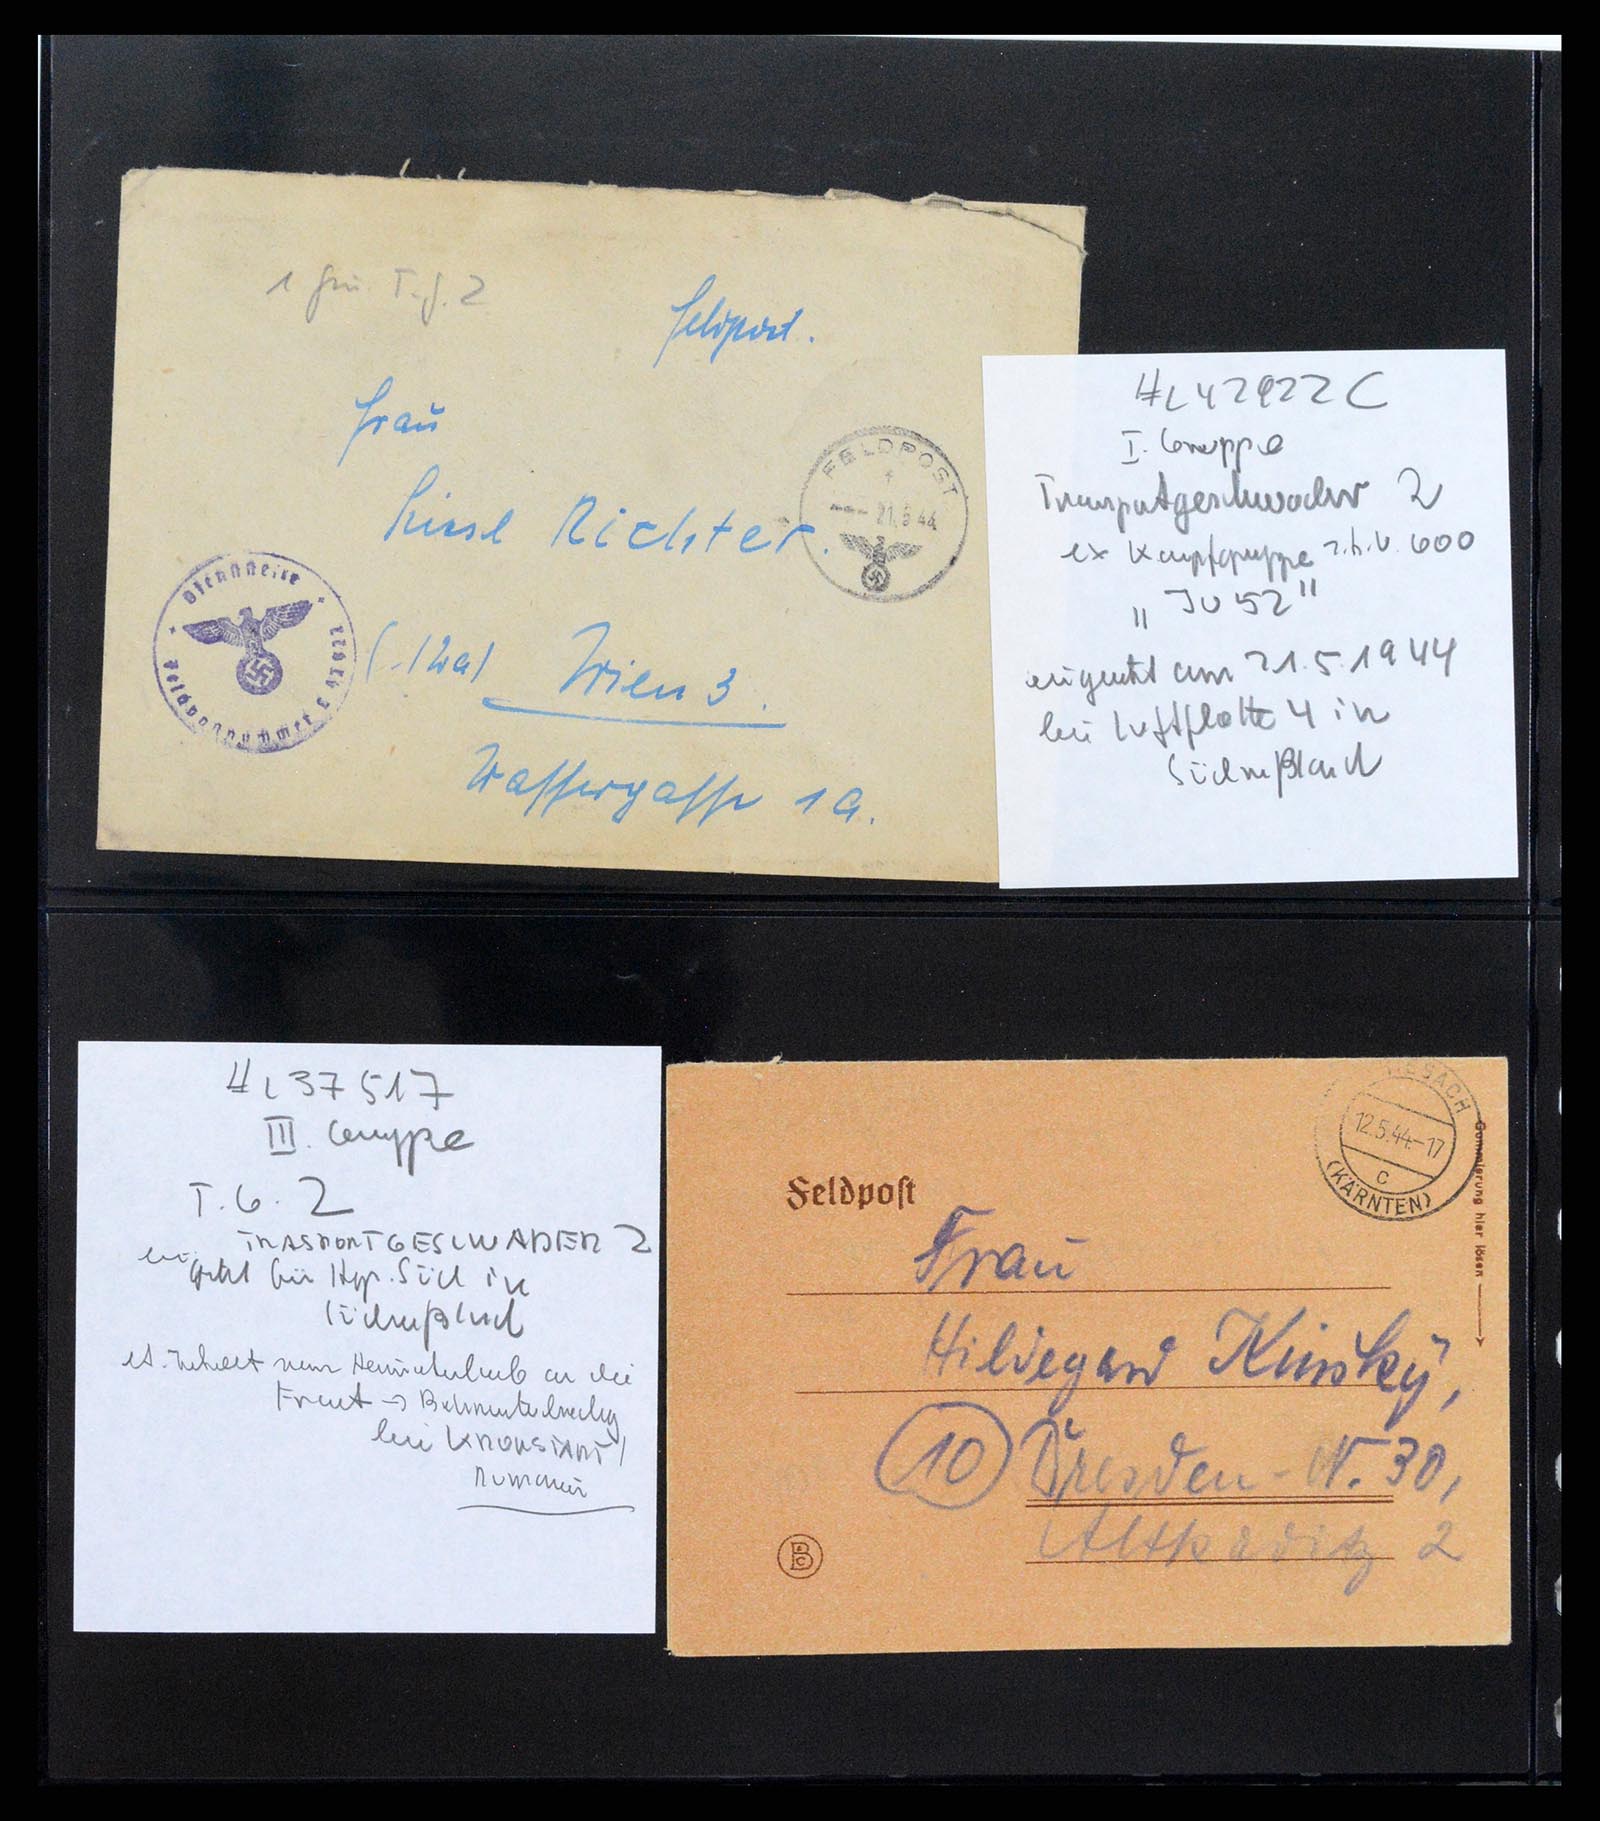 1 T.G. 2
Feldpost.
Frau
Liesl Richter.
(-/Wa) Wien 3.
Wassergasse 1a.
FELDPOST
21.5.44
Dienststelle
Feldpostnummer
#L42922C
I. Gruppe
Transportgeschwader 2
ex Kampfgruppe z.b.V. 600
„JU 52"
eingesetzt am 21.5.1944
bei Luftflotte 4 in
Südrußland
#L37517
III. Gruppe
T.G. 2
TRASPORTGESCHWADER 2
eingesetzt bei Hgr. Süd in
Südrußland
lt. Inhalt vom Heimaturlaub an die
Front ->
bei KRONSTADT/
Rumänien
ESACH
12.5.44.-17
c
(KÄRNTEN)
Gummierung hier lösen
Feldpost
Frau
Hildegard Kinsky,
10 Dresden-N. 30,
Altkaditz 2